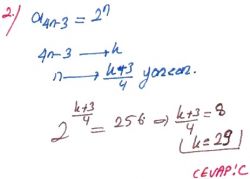 2.) a₄ₙ₋₃ = 2ⁿ
4n-3 → k
n → (k+3)/4 yazarız.
2^((k+3)/4) = 256 ⇒ (k+3)/4 = 8
k = 29
CEVAP: C